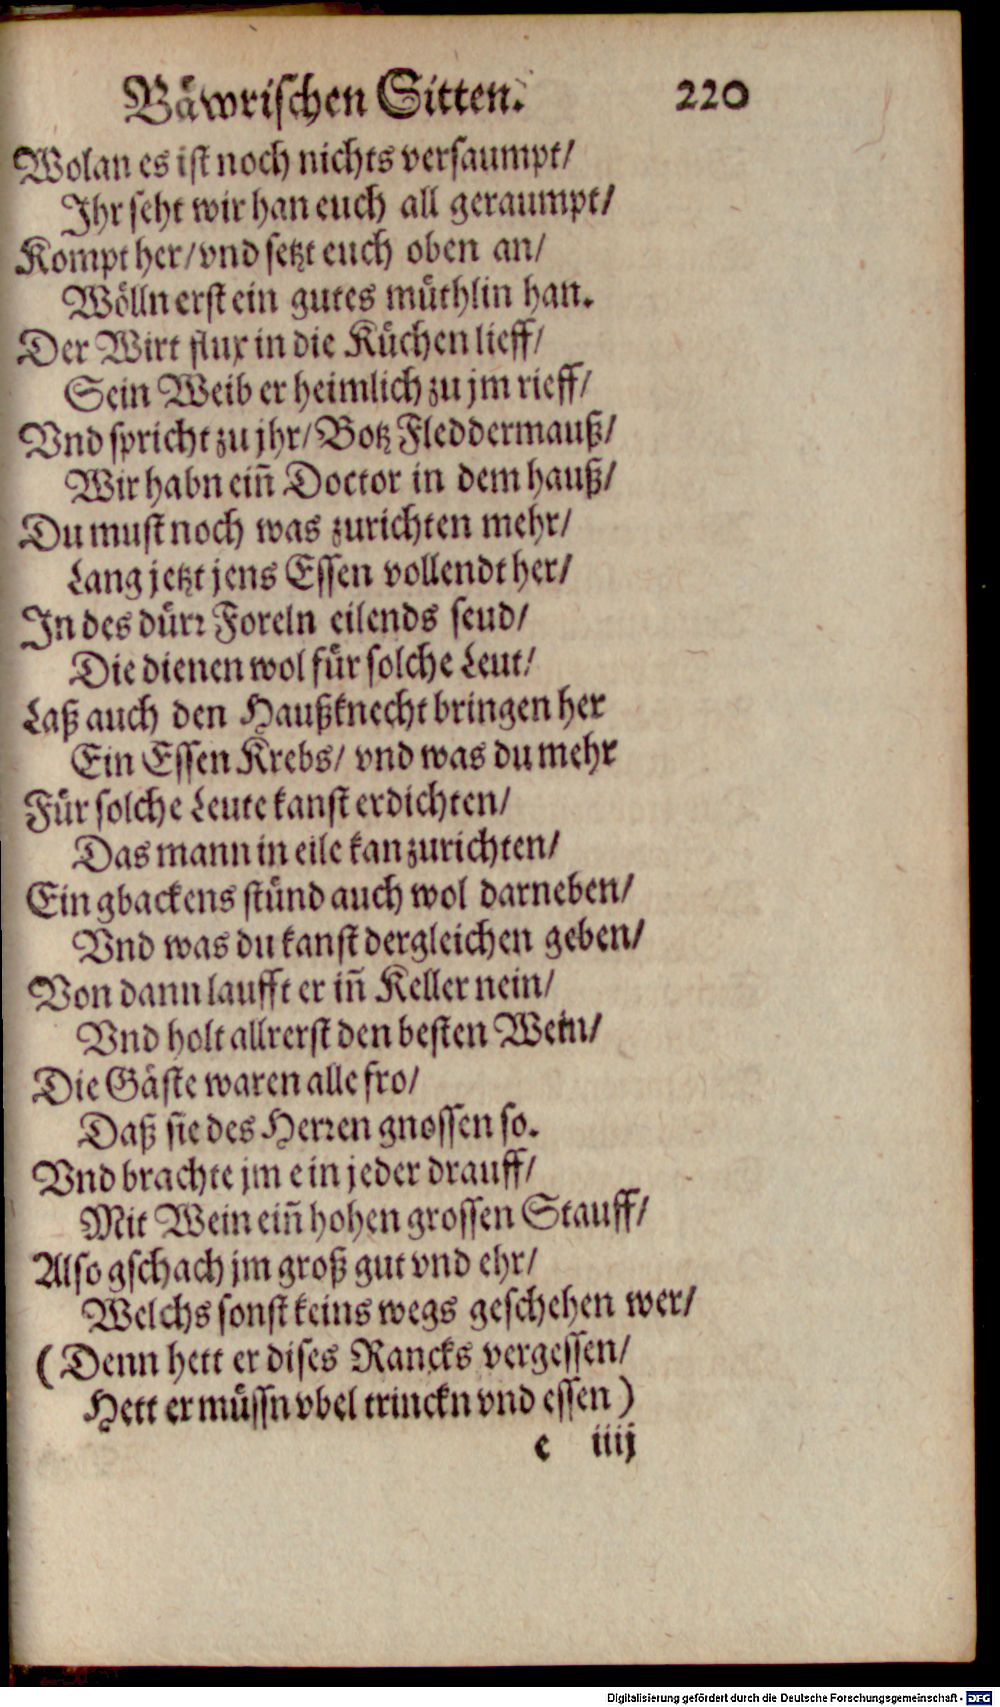 Bäwrischen Sitten. 220
Wolan es ist noch nichts versaumpt/
Ihr seht wir han euch all geraumpt/
Kompt her/ vnd setzt euch oben an/
Wölln erst ein gutes müthlin han.
Der Wirt flux in die Küchen lieff/
Sein Weib er heimlich zu jm rieff/
Vnd spricht zu jhr/ Botz Fleddermauß/
Wir habn eiñ Doctor in dem hauß/
Du must noch was zurichten mehr/
Lang jetzt jens Essen vollendt her/
In des dürr Foreln eilends seud/
Die dienen wol für solche Leut/
Laß auch den Haußknecht bringen her
Ein Essen Krebs/ vnd was du mehr
Für solche Leute kanst erdichten/
Das mann in eile kan zurichten/
Ein gbackens stünd auch wol darneben/
Vnd was du kanst dergleichen geben/
Von dann laufft er iñ Keller nein/
Vnd holt allrerst den besten Wein/
Die Gäste waren alle fro/
Daß sie des Herren gnossen so.
Vnd brachte jm ein jeder drauff/
Mit Wein eiñ hohen grossen Stauff/
Also gschach jm groß gut vnd ehr/
Welchs sonst keins wegs geschehen wer/
(Denn hett er dises Rancks vergessen/
Hett er müssn vbel trinckn vnd essen)
e iiij
Digitalisierung gefördert durch die Deutsche Forschungsgemeinschaft - DFG